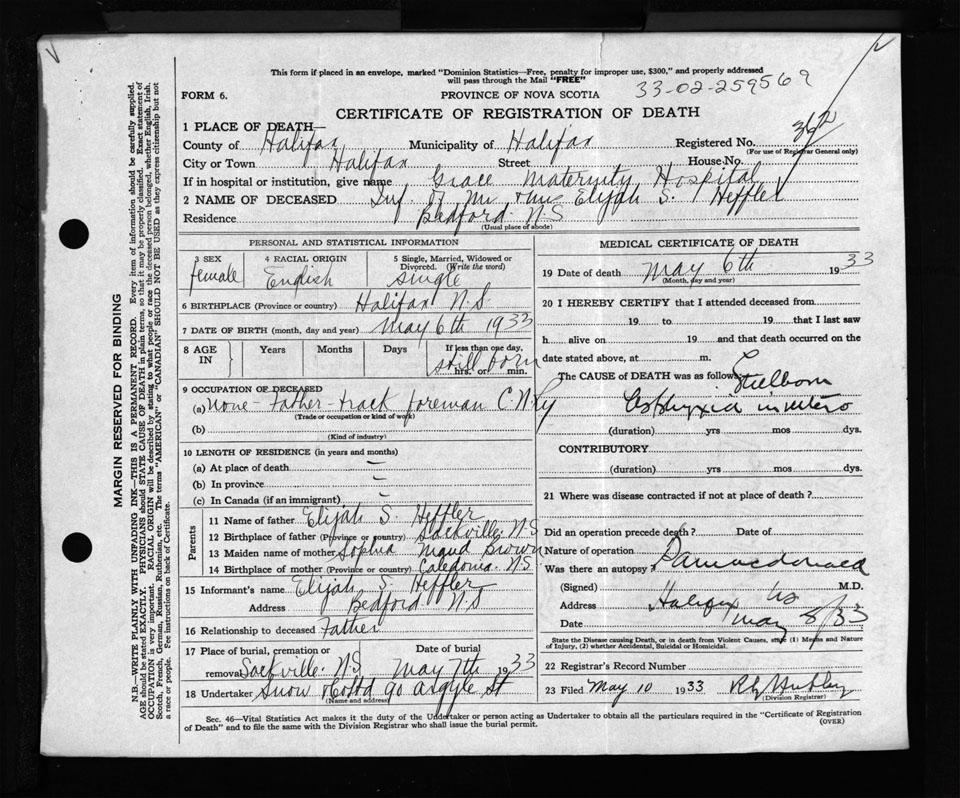 This form if placed in an envelope, marked "Dominion Statistics—Free, penalty for improper use, $300," and properly addressed
will pass through the Mail "FREE"
FORM 6.
PROVINCE OF NOVA SCOTIA
33-02-259569
CERTIFICATE OF REGISTRATION OF DEATH
1 PLACE OF DEATH—
County of Halifax Municipality of Halifax Registered No.
(For use of Registrar General only)
City or Town Halifax Street House No.
If in hospital or institution, give name Grace Maternity Hospital
2 NAME OF DECEASED Inf. of Mr Elijah S. Heffler
Residence Bedford N.S
(Usual place of abode)
PERSONAL AND STATISTICAL INFORMATION
3 SEX
female
4 RACIAL ORIGIN
English
5 Single, Married, Widowed or
Divorced. (Write the word)
Single
6 BIRTHPLACE (Province or country) Halifax N.S.
7 DATE OF BIRTH (month, day and year) May 6th 1933
8 AGE
IN
Years
Months
Days
If less than one day,
still born
hrs. or min.
9 OCCUPATION OF DECEASED
(a) None - Father - track foreman C.N.Ry
(Trade or occupation or kind of work)
(b)
(Kind of industry)
10 LENGTH OF RESIDENCE (in years and months)
(a) At place of death —
(b) In province —
(c) In Canada (if an immigrant) —
Parents
11 Name of father Elijah S. Heffler
12 Birthplace of father (Province or country) Sackville N.S
13 Maiden name of mother Sophia Maud Brown
14 Birthplace of mother (Province or country) Caledonia. N.S
15 Informant's name Elijah S. Heffler
Address Bedford N.S
16 Relationship to deceased Father
17 Place of burial, cremation or
removal Sackville. N.S
Date of burial
May 7th 1933
18 Undertaker Snow & Co Ltd 90 Argyle St
(Name and address)
MEDICAL CERTIFICATE OF DEATH
19 Date of death May 6th 1933
(Month, day and year)
20 I HEREBY CERTIFY that I attended deceased from
19 to 19 that I last saw
h alive on 19 and that death occurred on the
date stated above, at m.
The CAUSE OF DEATH was as follows: Stillborn
Asphyxia in utero
(duration) yrs mos dys.
CONTRIBUTORY
(duration) yrs mos dys.
21 Where was disease contracted if not at place of death?
Did an operation precede death? Date of
Nature of operation
Was there an autopsy
(Signed) Macdonald M.D.
Address Halifax NS
Date May 8/33
State the Disease causing Death, or in death from Violent Causes, state (1) Means and Nature
of Injury, (2) whether Accidental, Suicidal or Homicidal.
22 Registrar's Record Number
23 Filed May 10 1933
(Division Registrar)
Sec. 46—Vital Statistics Act makes it the duty of the Undertaker or person acting as Undertaker to obtain all the particulars required in the "Certificate of Registration
of Death" and to file the same with the Division Registrar who shall issue the burial permit.
(OVER)
MARGIN RESERVED FOR BINDING
N.B.—WRITE PLAINLY WITH UNFADING INK—THIS IS A PERMANENT RECORD. Every item of information should be carefully supplied.
AGE should be stated EXACTLY. PHYSICIANS should STATE CAUSE OF DEATH in plain terms, so that it may be properly classified. Exact statement of
OCCUPATION is very important. RACIAL ORIGIN will be described by stating to what people or race the deceased person belonged, whether English, Irish,
Scotch, French, German, Russian, Ruthenian, etc. The terms "AMERICAN" or "CANADIAN" SHOULD NOT BE USED as they express citizenship but not
a race or people. See instructions on back of Certificate.